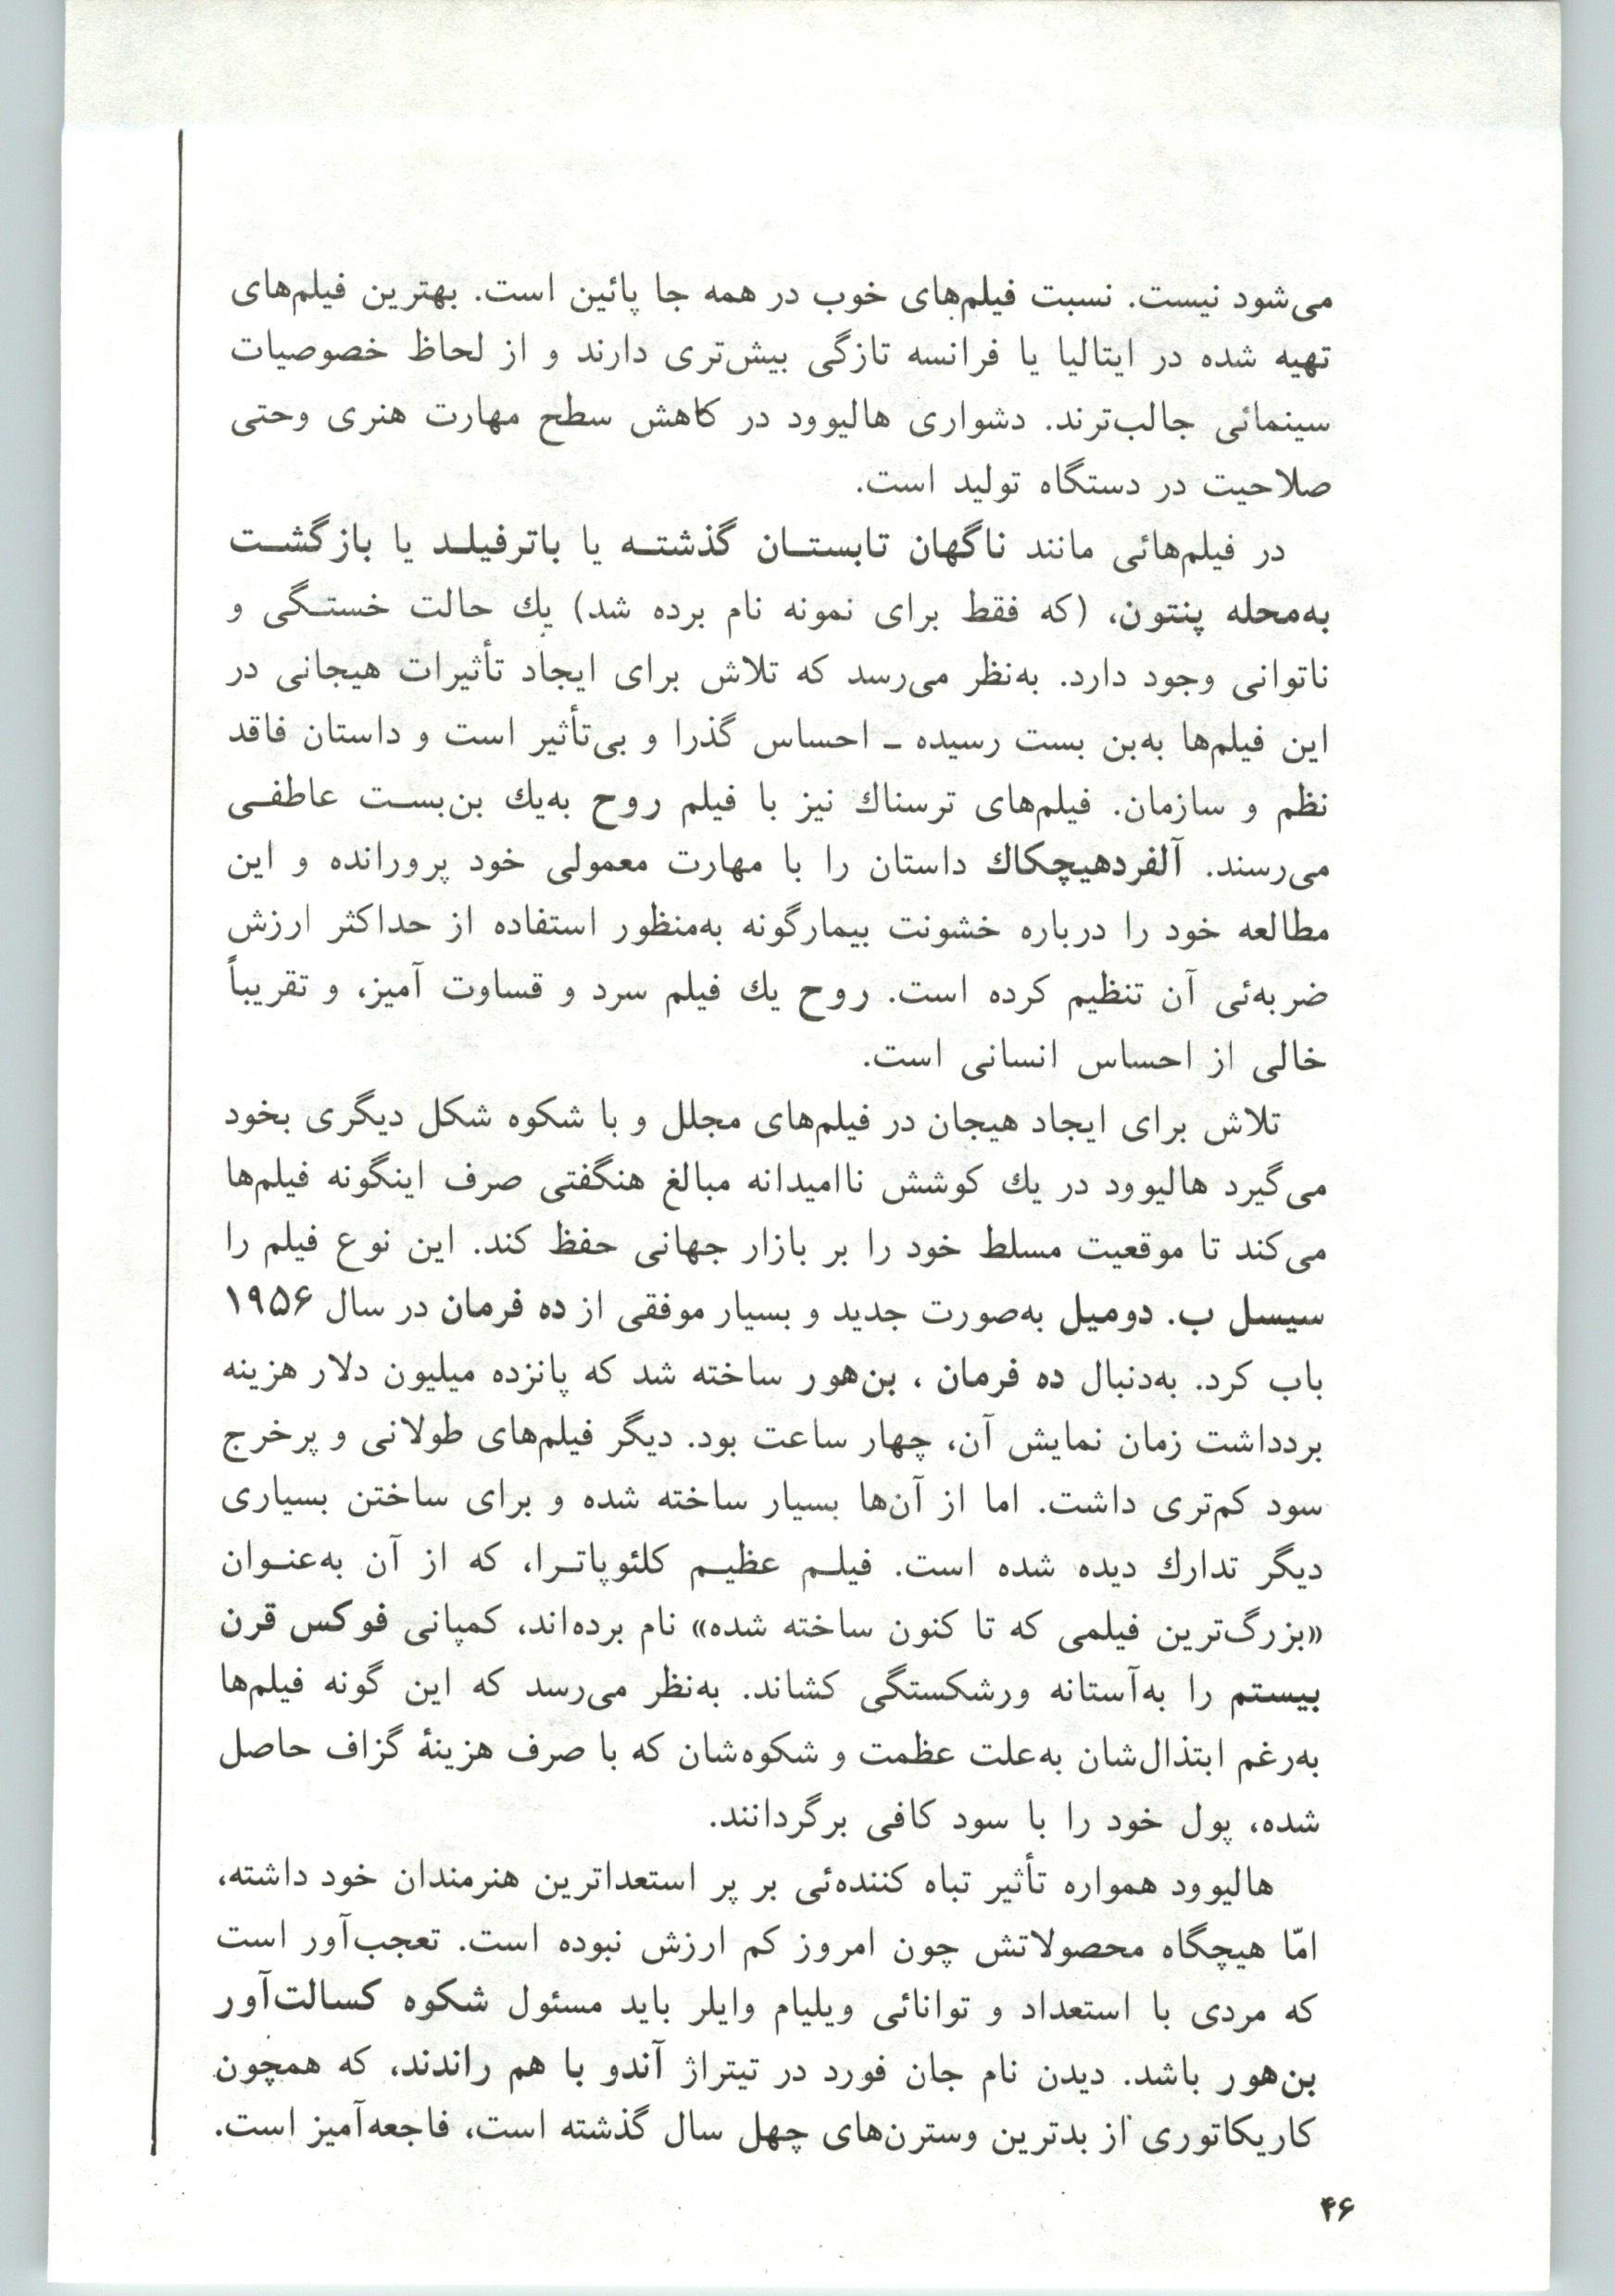 می‌شود نیست. نسبت فیلم‌های خوب در همه جا پائین است. بهترین فیلم‌های
تهیه شده در ایتالیا یا فرانسه تازگی بیش‌تری دارند و از لحاظ خصوصیات
سینمائی جالب‌ترند. دشواری هالیوود در کاهش سطح مهارت هنری وحتی
صلاحیت در دستگاه تولید است.
در فیلم‌هائی مانند ناگهان تابستـان گذشتـه یا باترفیلـد یا بازگشـت
به‌محله پنتون، (که فقط برای نمونه نام برده شد) یك حالت خستـگی و
ناتوانی وجود دارد. به‌نظر می‌رسد که تلاش برای ایجاد تأثیرات هیجانی در
این فیلم‌ها به‌بن بست رسیده ـ احساس گذرا و بی‌تأثیر است و داستان فاقد
نظم و سازمان. فیلم‌های ترسناك نیز با فیلم روح به‌یك بن‌بسـت عاطفـی
می‌رسند. آلفردهیچکاك داستان را با مهارت معمولی خود پرورانده و این
مطالعه خود را درباره خشونت بیمارگونه به‌منظور استفاده از حداکثر ارزش
ضربه‌ئی آن تنظیم کرده است. روح یك فیلم سرد و قساوت آمیز، و تقریباً
خالی از احساس انسانی است.
تلاش برای ایجاد هیجان در فیلم‌های مجلل و با شکوه شکل دیگری بخود
می‌گیرد هالیوود در یك کوشش ناامیدانه مبالغ هنگفتی صرف اینگونه فیلم‌ها
می‌کند تا موقعیت مسلط خود را بر بازار جهانی حفظ کند. این نوع فیلم را
سیسل ب. دومیل به‌صورت جدید و بسیار موفقی از ده فرمان در سال ۱۹۵۶
باب کرد. به‌دنبال ده فرمان ، بن‌هور ساخته شد که پانزده میلیون دلار هزینه
بردداشت زمان نمایش آن، چهار ساعت بود. دیگر فیلم‌های طولانی و پرخرج
سود کم‌تری داشت. اما از آن‌ها بسیار ساخته شده و برای ساختن بسیاری
دیگر تدارك دیده شده است. فیلـم عظیـم کلئوپاتـرا، که از آن به‌عنـوان
«بزرگ‌ترین فیلمی که تا کنون ساخته شده» نام برده‌اند، کمپانی فوکس قرن
بیستم را به‌آستانه ورشکستگی کشاند. به‌نظر می‌رسد که این گونه فیلم‌ها
به‌رغم ابتذال‌شان به‌علت عظمت و شکوه‌شان که با صرف هزینهٔ گزاف حاصل
شده، پول خود را با سود کافی برگردانند.
هالیوود همواره تأثیر تباه کننده‌ئی بر پر استعداترین هنرمندان خود داشته،
امّا هیچگاه محصولاتش چون امروز کم ارزش نبوده است. تعجب‌آور است
که مردی با استعداد و توانائی ویلیام وایلر باید مسئول شکوه کسالت‌آور
بن‌هور باشد. دیدن نام جان فورد در تیتراژ آندو با هم راندند، که همچون
کاریکاتوری از بدترین وسترن‌های چهل سال گذشته است، فاجعه‌آمیز است.
۴۶